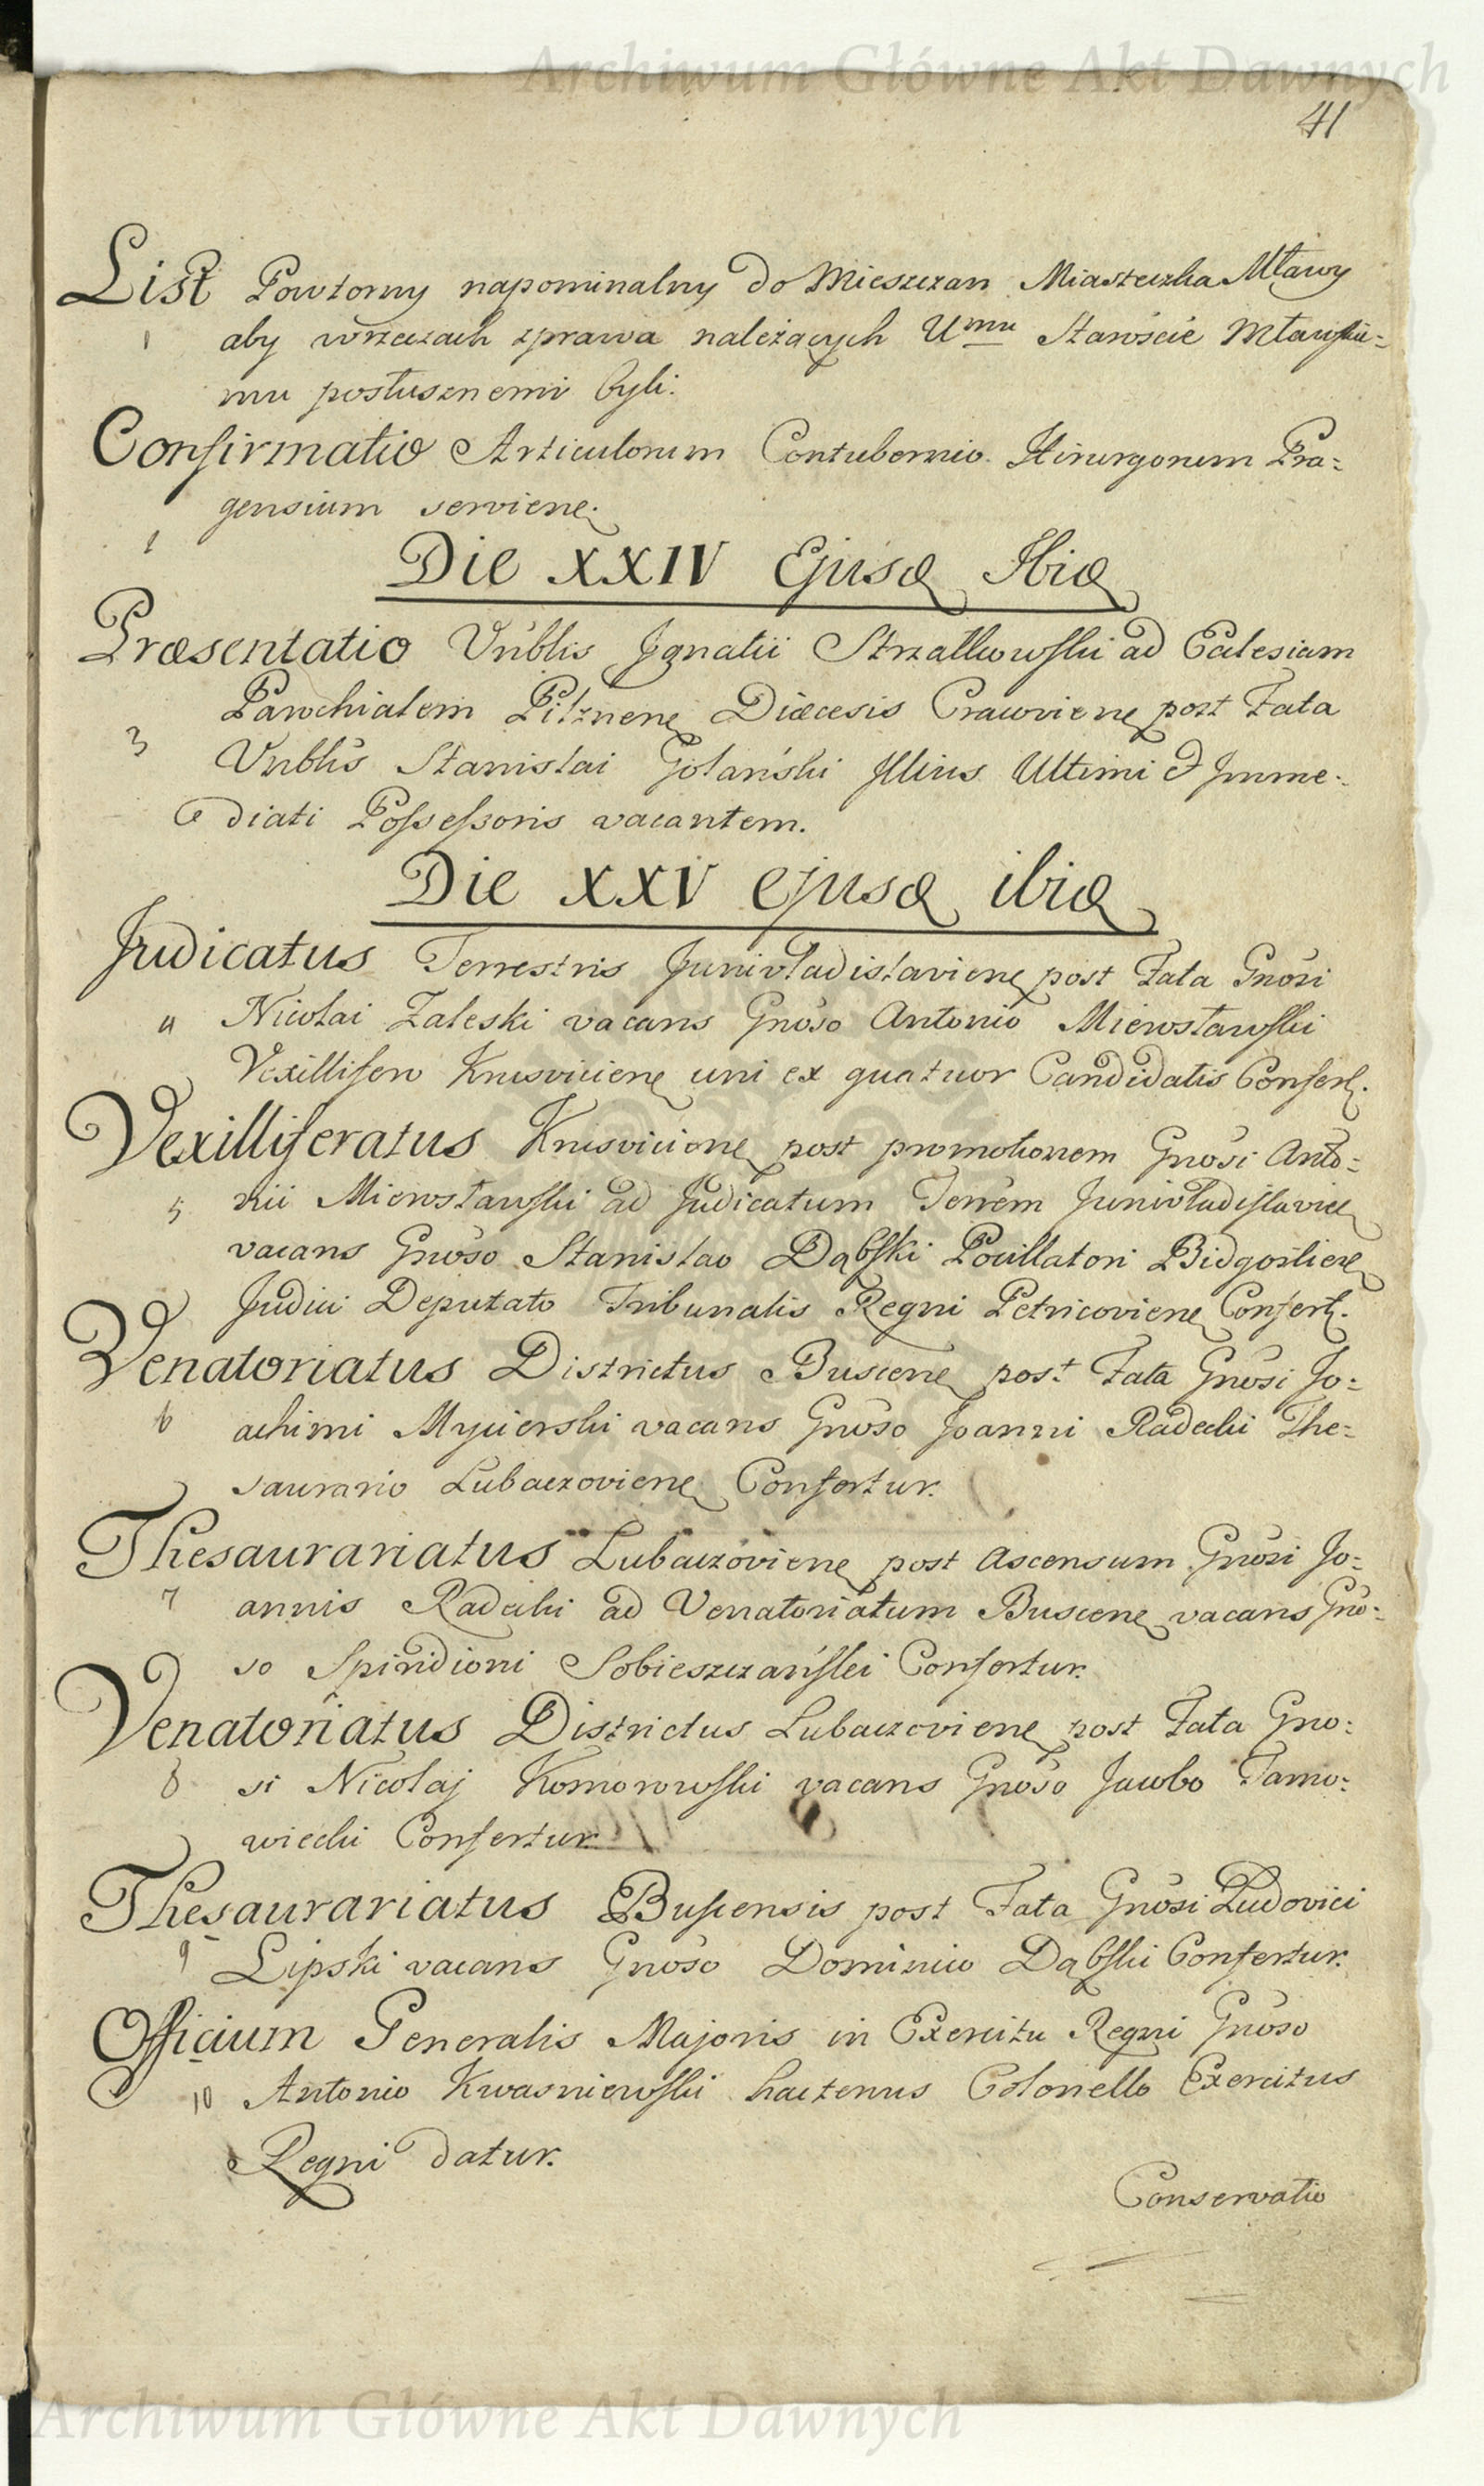 Archiwum Główne Akt Dawnych
41
List Powtorny napominalny do Mieszczan Miasteczka Mławy
1 aby wrzeczach zprawa należących Umu Staroście Mławskie=
mu posłusznemi byli.
Confirmatio Articulorum Contubernio Hirurgorum Pra=
gensium serviene.
1
Die XXIV Ejusd Ibid
Præsentatio Vnblis Ignatii Strzałkowski ad Eclesiam
Parochialem Pilznene Diæcesis Cracoviene post Fata
3 Vnblis Stanislai Golański Illius Ultimi & Imme=
diati Possessoris vacantem.
Die XXV ejusd ibid
Judicatus Terrestris Junivladislaviene post Fata Gnosi
4 Nicolai Zaleski vacans Gnoso Antonio Mierosławski
Vexillifero Krusviciene uni ex quatuor Candidatis Confert.
Vexilliferatus Krusviciene post promotionem Gnosi Anto=
5 nii Mierosławski ad Judicatum Terrem Junivladislavice
vacans Gnoso Stanislao Dąbski Pocillatori Bidgostiene
Judici Deputato Tribunalis Regni Petricoviene Confert.
Venatoriatus Districtus Buscene post Fata Gnosi Jo=
6 achimi Mycierski vacans Gnoso Joanni Radecki The=
saurario Lubaczoviene Confertur.
Thesaurariatus Lubaczoviene post Ascensum Gnosi Jo=
7 annis Radecki ad Venatoriatum Buscene vacans Gno=
so Spiridioni Sobieszczański Confertur.
Venatoriatus Districtus Lubaczoviene post Fata Gno=
8 si Nicolaj Komorowski vacans Gnoso Jacobo Tarno=
wiecki Confertur.
Thesaurariatus Buscensis post Fata Gnosi Ludovici
9 Lipski vacans Gnoso Dominico Dąbski Confertur.
Officium Generalis Majoris in Exercitu Regni Gnoso
10 Antonio Kwasniewski hactenus Colonello Exercitus
Regni datur.
Conservatio
Archiwum Główne Akt Dawnych